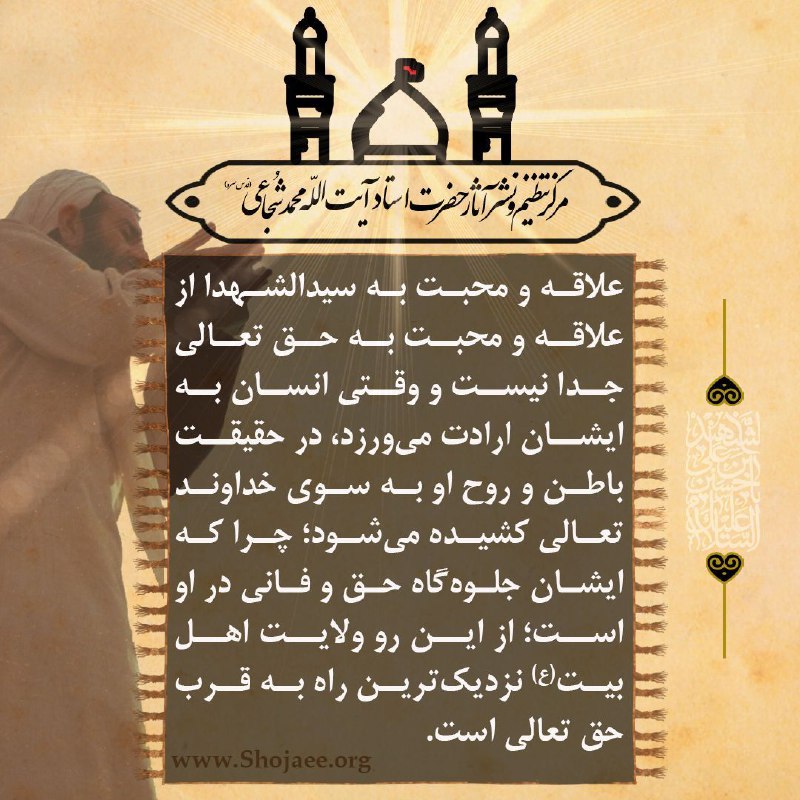 مرکز تنظیم و نشر آثار حضرت استاد آیت الله محمد شجاعی (قدس سره)
علاقه و محبت به سیدالشهدا از
علاقه و محبت به حق تعالی
جدا نیست و وقتی انسان به
ایشان ارادت می‌ورزد، در حقیقت
باطن و روح او به سوی خداوند
تعالی کشیده می‌شود؛ چرا که
ایشان جلوه‌گاه حق و فانی در او
است؛ از این رو ولایت اهل
بیت(ع) نزدیک‌ترین راه به قرب
حق تعالی است.
www.Shojaee.org